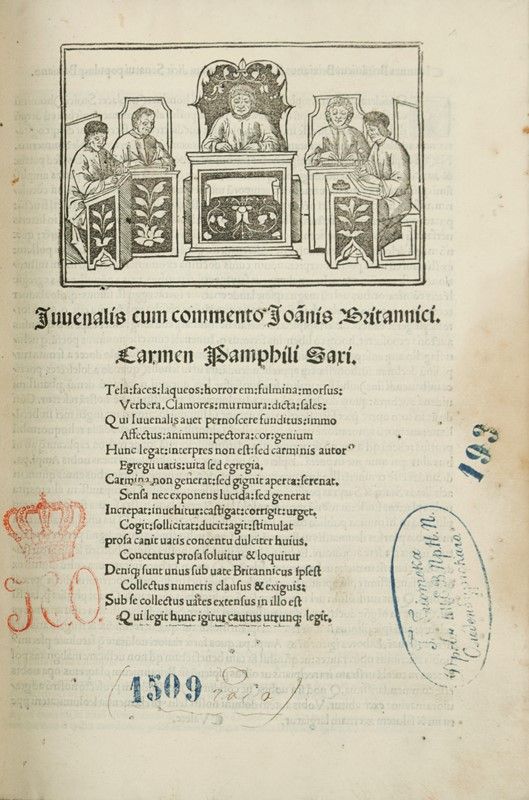 Juuenalis cum commento Joãnis Britannici.
Carmen Pamphili Saxi.
Tela:faces:laqueos:horrorem:fulmina:morsus:
Verbera.Clamores:murmura:dicta:sales:
Qui Iuuenalis auet pernoscere funditus:immo
Affectus:animum:pectora:cor:genium
Hunc legat:interpres non est:sed carminis autor⁹
Egregii uatis:uita sed egregia.
Carmina non generat:sed gignit aperta:serenat.
Sensa nec exponens lucida:sed generat
Increpat:inuehitur:castigat:corrigit:urget.
Cogit:sollicitat:ducit:agit:stimulat
prosa canit uatis concentu dulciter huius.
Concentus prosa soluitur & loquitur
Deniqꝫ sunt unus sub uate Britannicus ipsest
Collectus numeris clausus & exiguis:
Sub se collectus uates extensus in illo est
Qui legit hunc igitur cautus utrunqꝫ legit.
193
1509